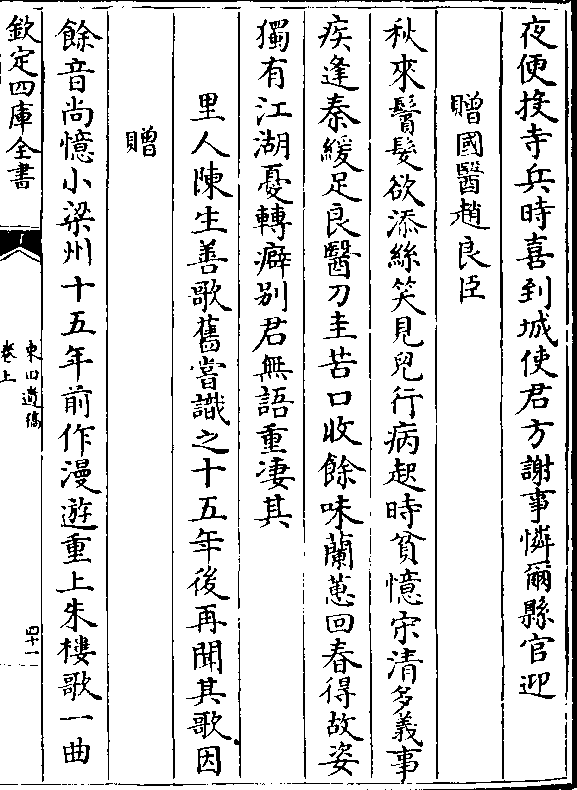 夜便投寺兵時喜到城使君方謝事憐爾縣官迎
贈國醫趙良臣
秋來鬢髮欲添絲笑見兒行病起時貧憶宋清多義事
疾逢秦緩足良醫刀圭苦口收餘味蘭蕙回春得故姿
獨有江湖憂轉癖别君無語重凄其
里人陳生善歌舊嘗識之十五年後再聞其歌因
贈
餘音尚憶小梁州十五年前作漫遊重上朱樓歌一曲
欽定四庫全書
東田遺稿
卷上
四十一